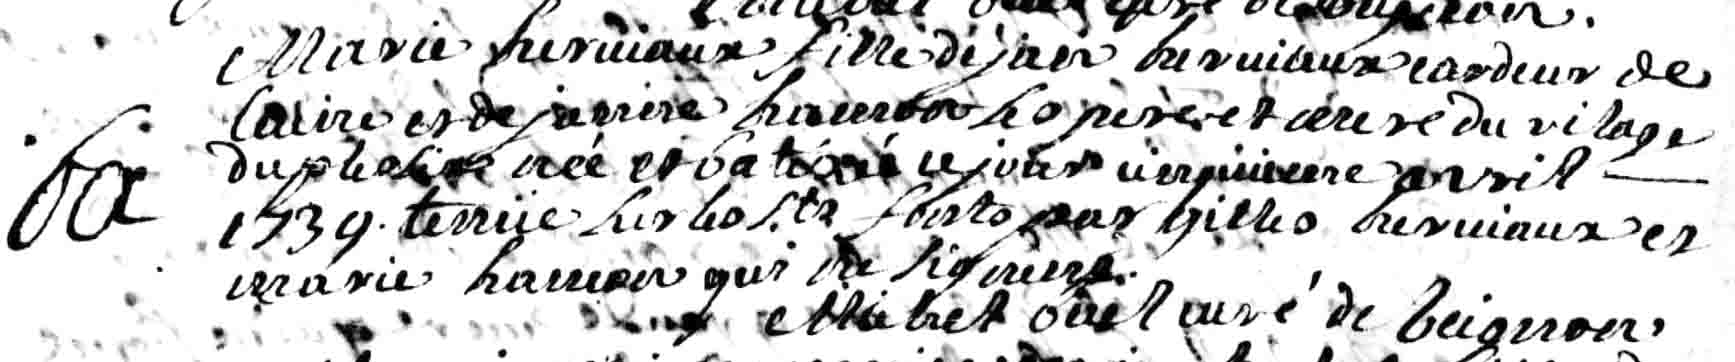 de beignon.
Marie herviaux fille de jan herviaux cardeur de
laine et de janine hamon ses pere et mere du vilage
du née et batisé ce jour cinquieme avril
1739. tenuë sur les sts fonts par gilles herviaux et
marie hamon qui ne signent.
ba
Mabret oüel curé de beignon.